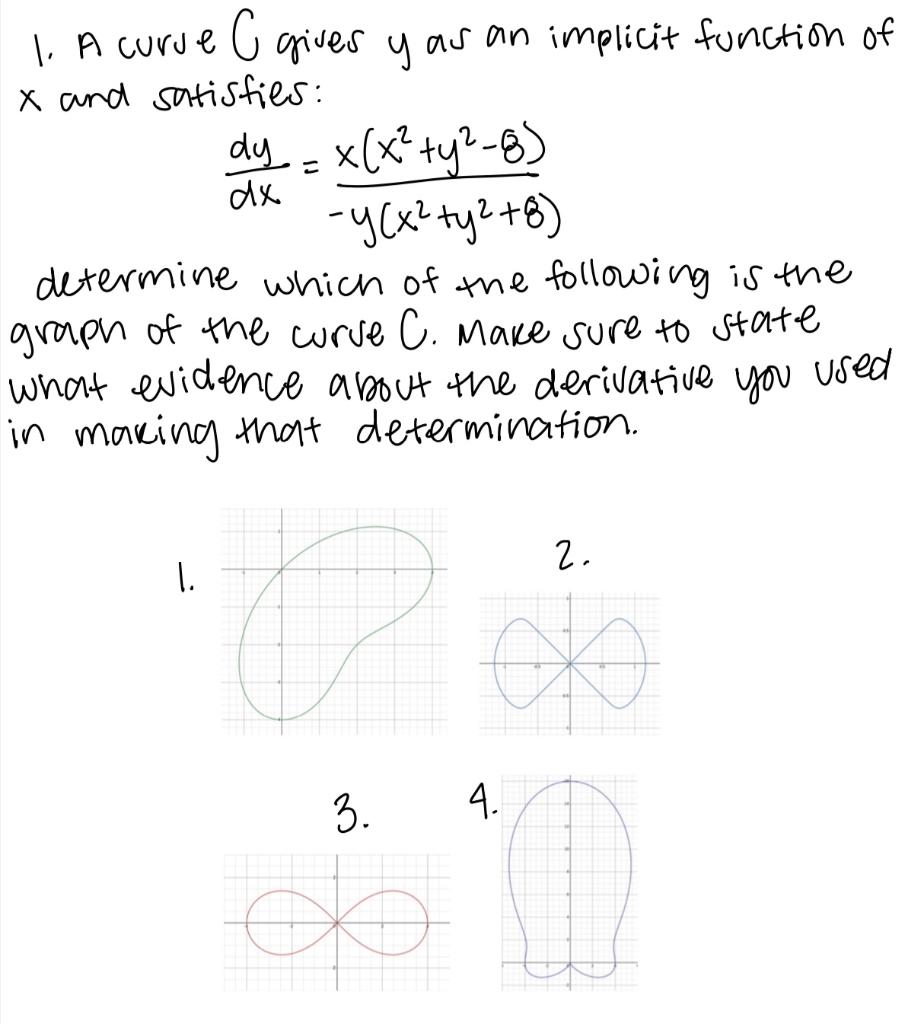 1. A curve C gives y as an implicit function of
x and satisfies:
dy/dx = x(x²+y²-8)/-y(x²+y²+8)
determine which of the following is the
graph of the curve C. Make sure to state
what evidence about the derivative you used
in making that determination.
1.
2.
3.
4.